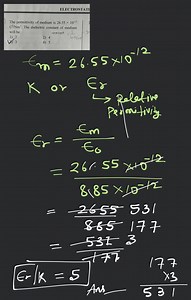 ELECTROSTAT
The permittivity of medium is 26.55 × 10⁻¹²
The dielectric constant of medium
will be
ϵm = 26.55 × 10⁻¹²
K or ϵr
↳ Relative
Permitivity
ϵr = ϵm / ϵ0
= 26.55 × 10⁻¹² / 8.85 × 10⁻¹²
= 2655 531 / 885 177
= 531 3 / 177
ϵr/K = 5
Ans
177
×3
531